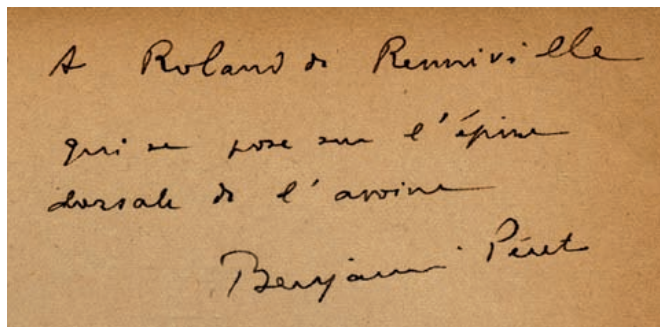 A Roland de Renneville
qui se pose sur l'épine
dorsale de l'avoine
Benjamin Péret